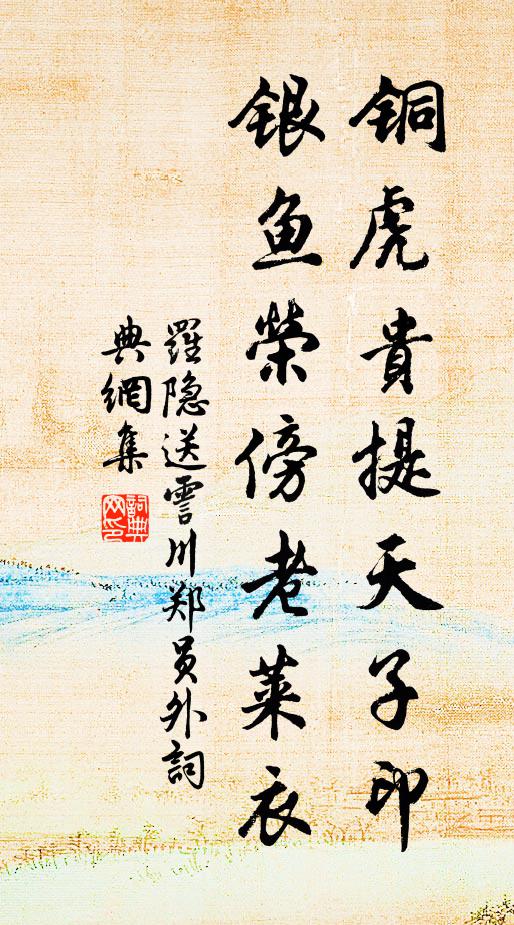 铜虎貴提天子印
银鱼榮傍老莱衣
羅隐送霅川郑员外詞
典網集
詞典网印